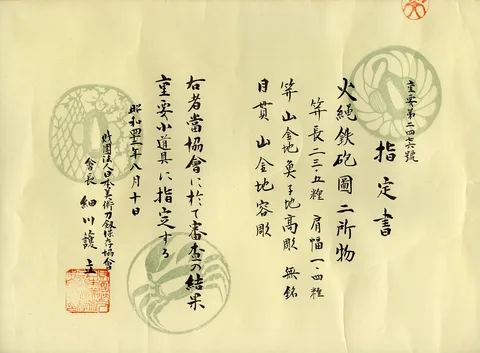 重要第二四七六號
指定書
火縄鉄砲圖二所物
笄長二三・五糎 肩幅一・四糎
笄 山金地 魚子地高彫 無銘
目貫 山金地容彫
右者當協會に於て審査の結果
重要小道具に指定する
昭和四十三年八月十日
財團法人日本美術刀剣保存協會
會長 細川護立